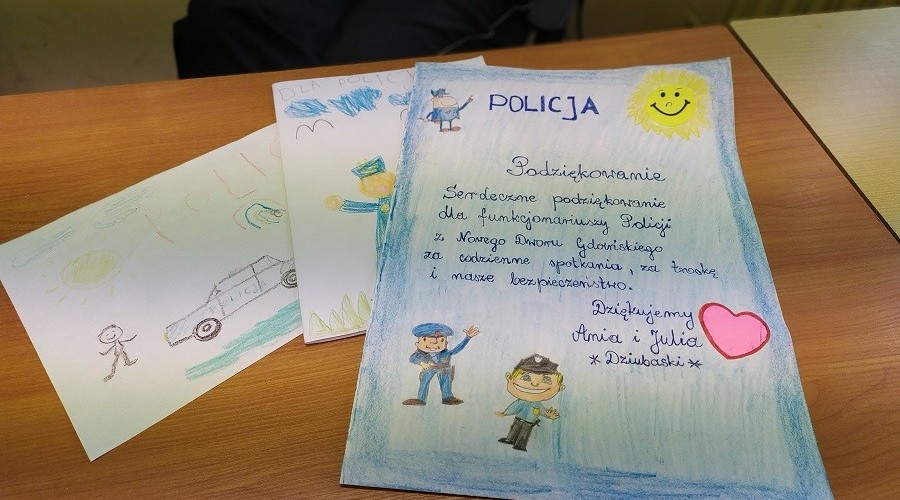 POLICJA
Podziękowanie
Serdeczne podziękowanie
dla funkcjonariuszy Policji
z Nowego Dworu Gdańskiego
za codzienne spotkania, za troskę
i nasze bezpieczeństwo.
Dziękujemy
Ania i Julia
* Dziubaski *
DLA POLICJ
POLICJA